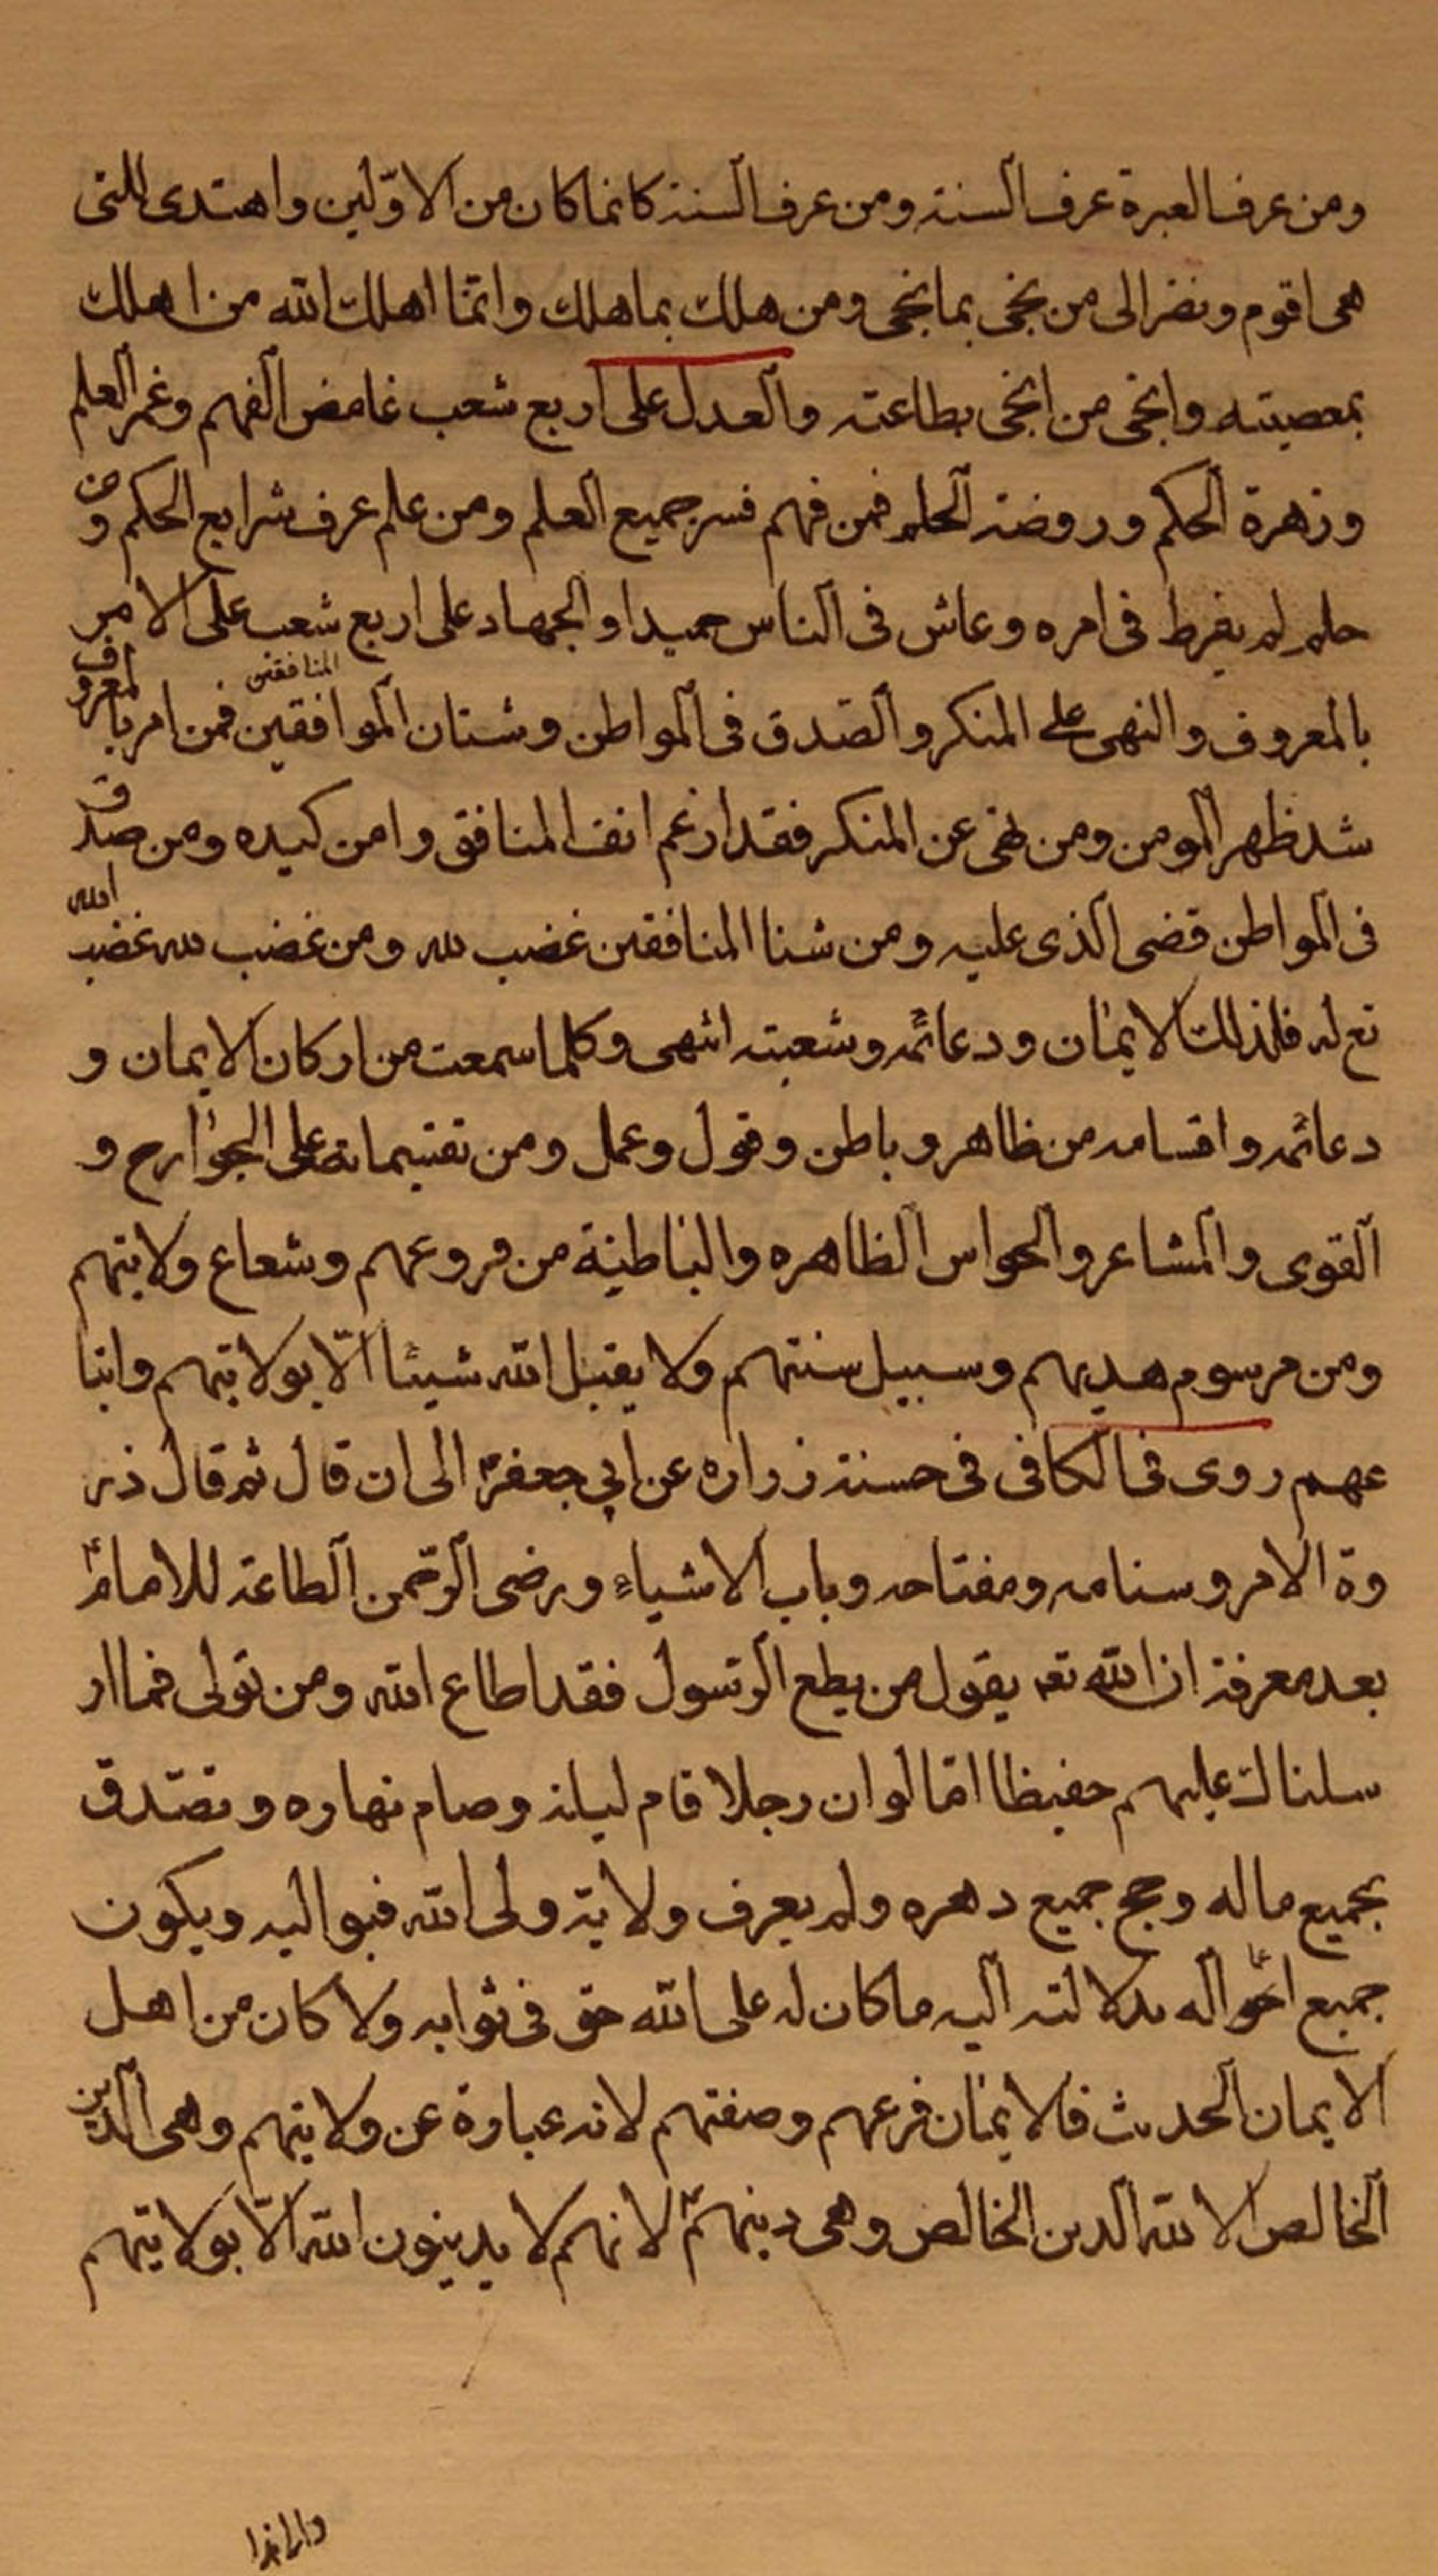 ومن عرف العبرة عرف السنة ومن عرف السنة كانما كان من الاوّلين واهتدى للتى
هى اقوم ونضر الى من نجى بما نجى ومن هلك بما هلك وانّما اهلك الله من اهلك
بمعصيته وانجى من انجى بطاعته والعدل على اربع شعب غامض الفهم وغمر العلم
وزهرة الحكم وروضة الحلم فمن فهم فسر جميع العلم ومن علم عرف شرايع الحكم ومن
حلم لم يفرط فى امره وعاش فى الناس حميدا والجهاد على اربع شعب على الامر
المنافقين
بالمعروف والنهى على المنكر والصّدق فى المواطن وشنان الموافقين فمن امر بالمعروف
شد ظهر المومن ومن نهى عن المنكر فقد ارغم انف المنافق وامن كيده ومن صدق
فى المواطن قضى الذى عليه ومن شنا المنافقين غضب لله ومن غضب لله غضب الله
تع له فلذلك الايمان ودعائمه وشعبته انتهى وكلما سمعت من اركان الايمان و
دعائمه واقسامه من ظاهر وباطن وقول وعمل ومن تقسيماته على الجوارح و
القوى والمشاعر والحواس الظاهره والباطنية من فروعهم وشعاع ولايتهم
ومن مرسوم هديهم وسبيل سنتهم ولا يقبل الله شيئًا الّا بولايتهم واتبا
عهم روى فى الكافى فى حسنة زراره عن ابي جعفرؑ الى ان قال ثم قال ذر
وة الامر وسنامه ومفتاحه وباب الاشياء ورضى الرّحمن الطاعة للامامؑ
بعد معرفة ان الله تعه يقول من يطع الرّسول فقد اطاع الله ومن تولى فما ار
سلناك عليهم حفيظا امّا لو ان رجلا قام ليله وصام نهاره وتصّدق
بجميع ماله وحج جميع دهره ولم يعرف ولاية ولى الله فيواليه ويكون
جميع احواله بدلالته اليه ما كان له على الله حق فى ثوابه ولا كان من اهل
الايمان الحديث فالايمان فرعهم وصفتهم لانه عبارة عن ولايتهم وهى الدين
الخالص الا لله الدين الخالص وهى دينهمؑ لانهم لا يدينون الله الّا بولايتهم